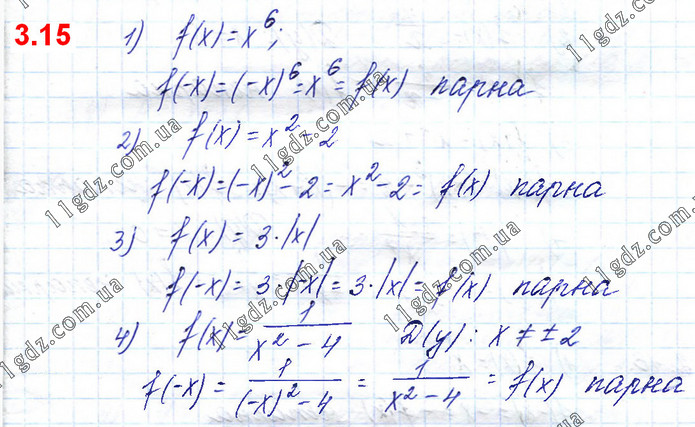 3.15 1) f(x) = x⁶;
f(-x) = (-x)⁶ = x⁶ = f(x) парна
2) f(x) = x² - 2
f(-x) = (-x)² - 2 = x² - 2 = f(x) парна
3) f(x) = 3·|x|
f(-x) = 3·|-x| = 3·|x| = f(x) парна
4) f(x) = 1/(x² - 4) D(y): x ≠ ±2
f(-x) = 1/((-x)² - 4) = 1/(x² - 4) = f(x) парна
11gdz.com.ua
11gdz.com.ua
11gdz.com.ua
11gdz.com.ua
11gdz.com.ua
11gdz.com.ua